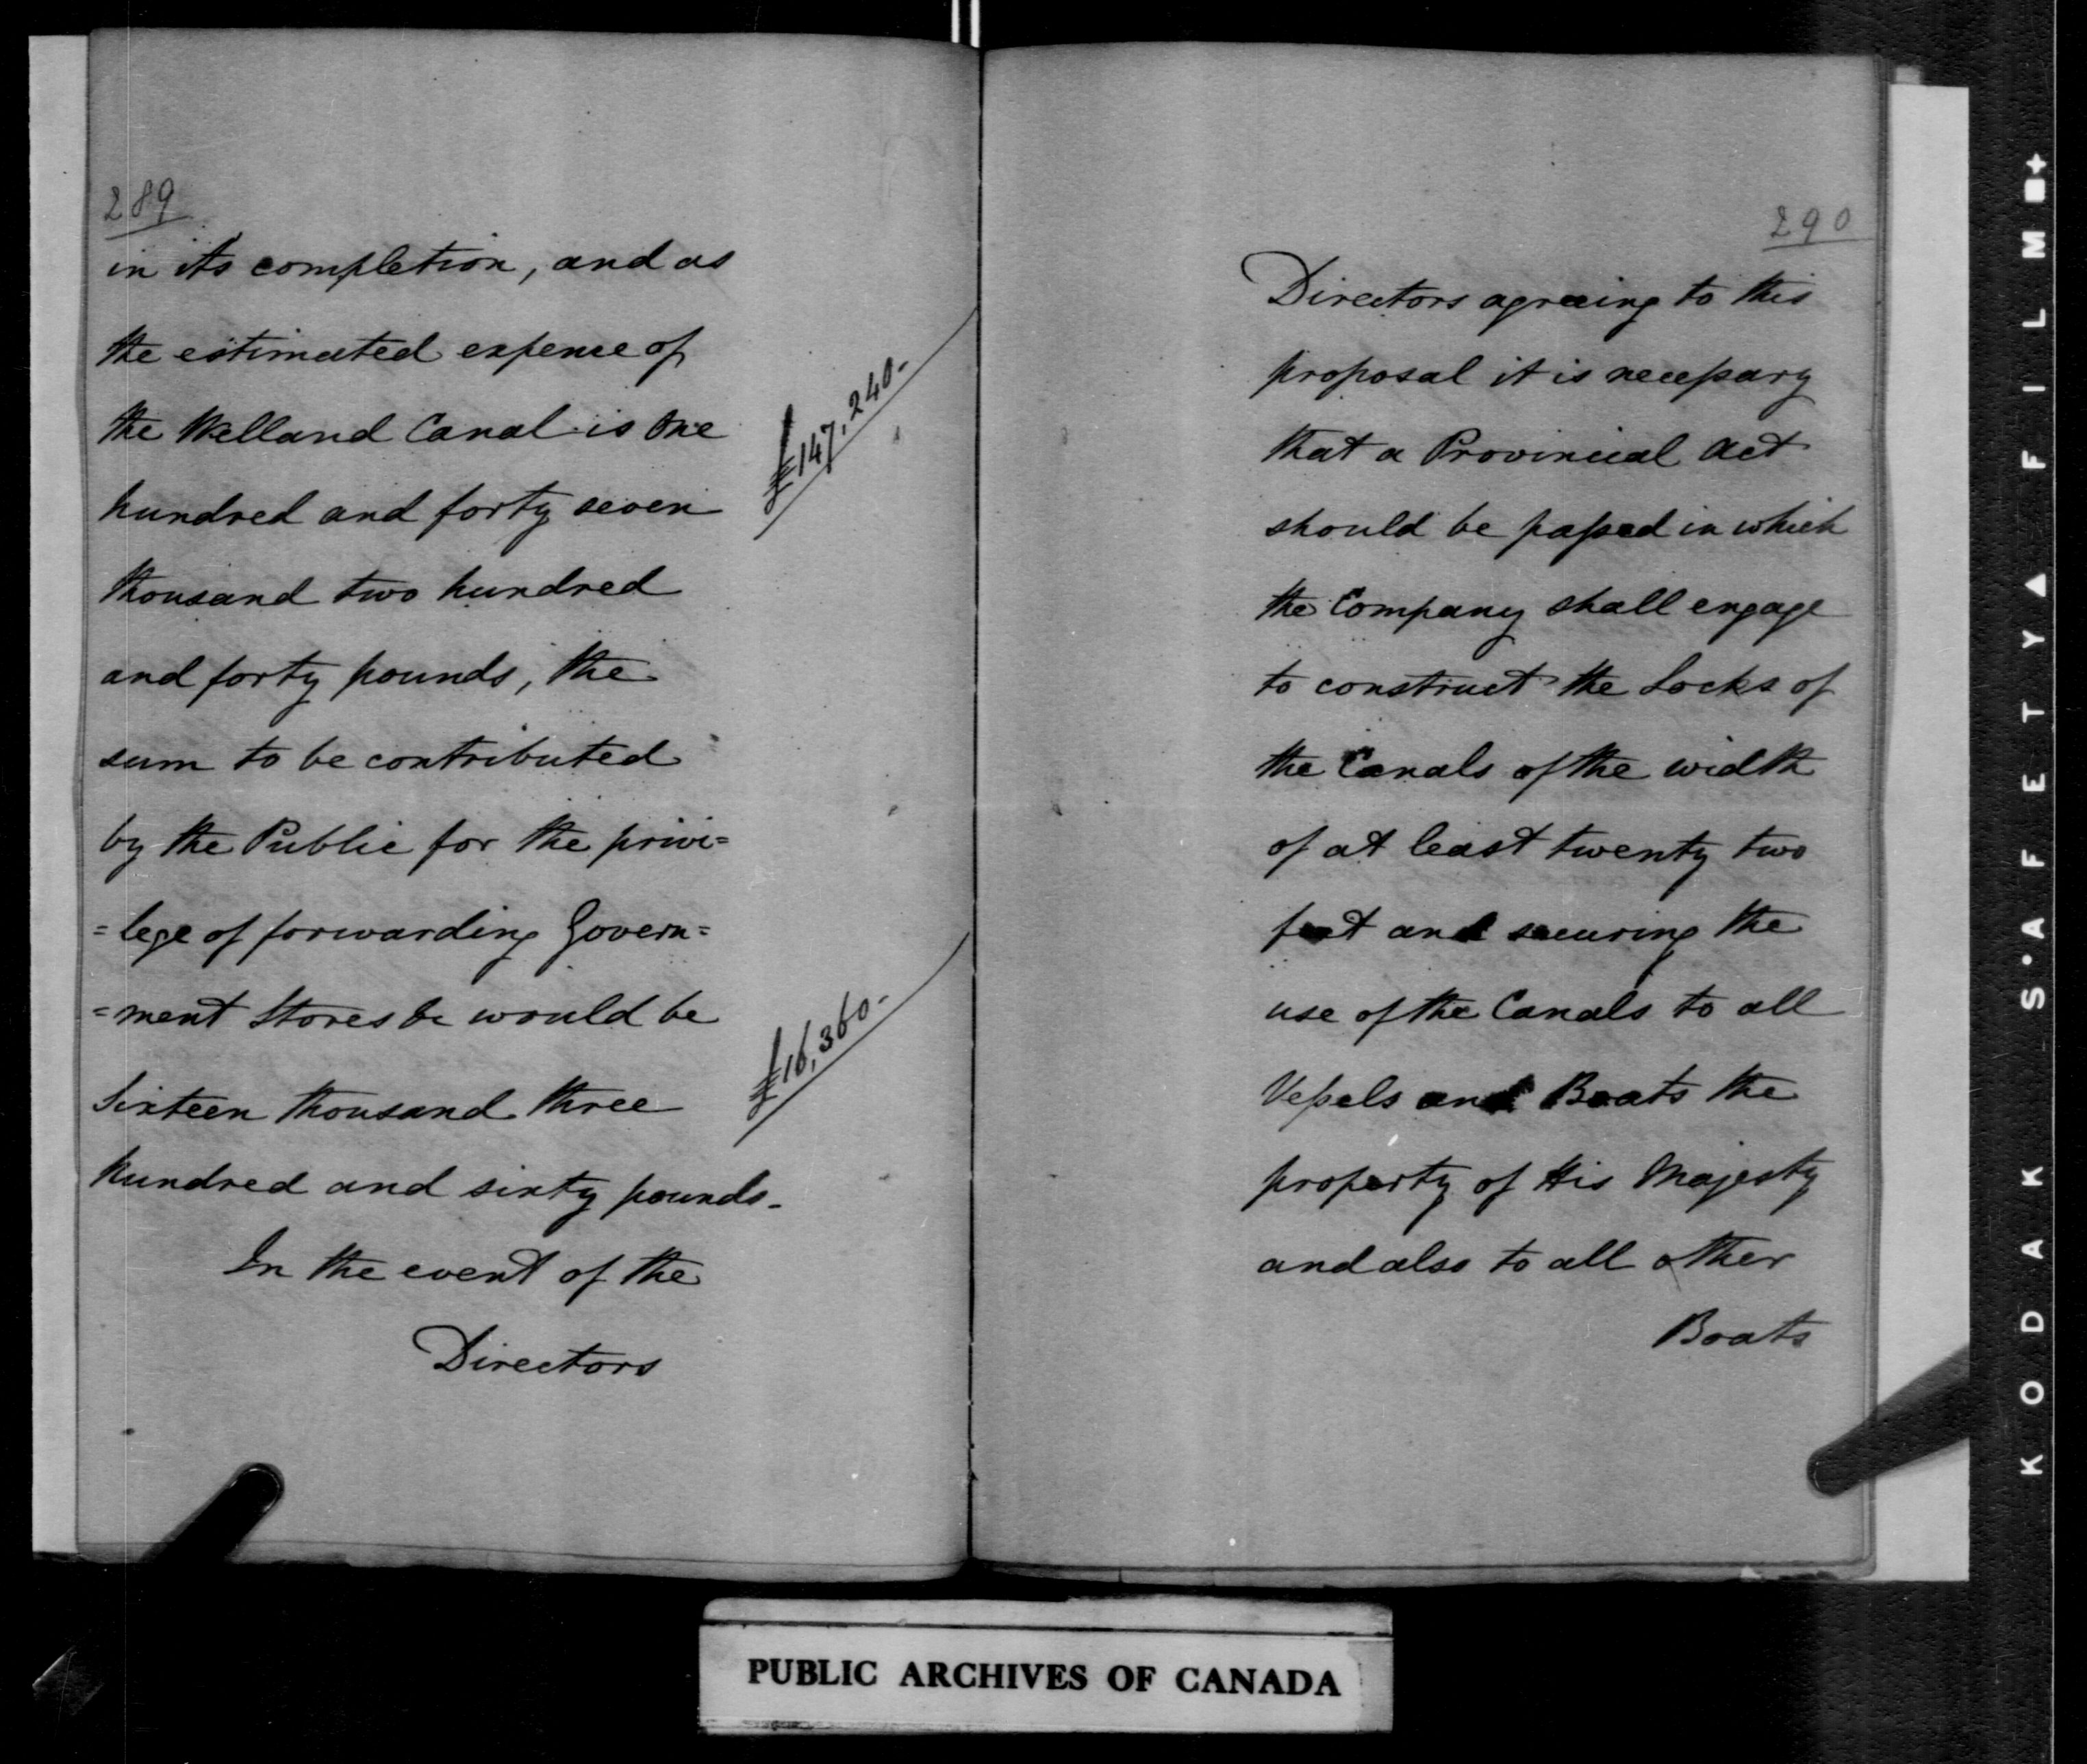 289
in its completion, and as
the estimated expence of
the Welland Canal is One
hundred and forty seven
thousand two hundred
and forty pounds, the
£147,240-
sum to be contributed
by the Public for the privi=
=lege of forwarding Govern=
=ment Stores &c would be
Sixteen thousand three
hundred and sixty pounds.
£16,360-
In the event of the
Directors
290
Directors agreeing to this
proposal it is necessary
that a Provincial Act
should be passed in which
the Company shall engage
to construct the Locks of
the Canals of the width
of at least twenty two
feet and securing the
use of the Canals to all
Vessels and Boats the
property of His Majesty
and also to all other
Boats
PUBLIC ARCHIVES OF CANADA
KODAK · SAFETY ▲ FILM ■+